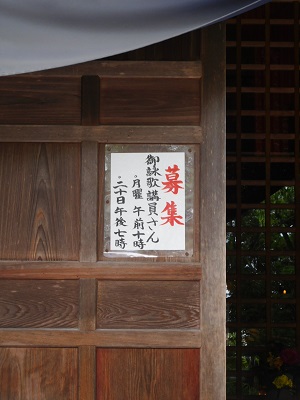 募集
御詠歌講員さん
・月曜 午前十時
・二十日午後七時